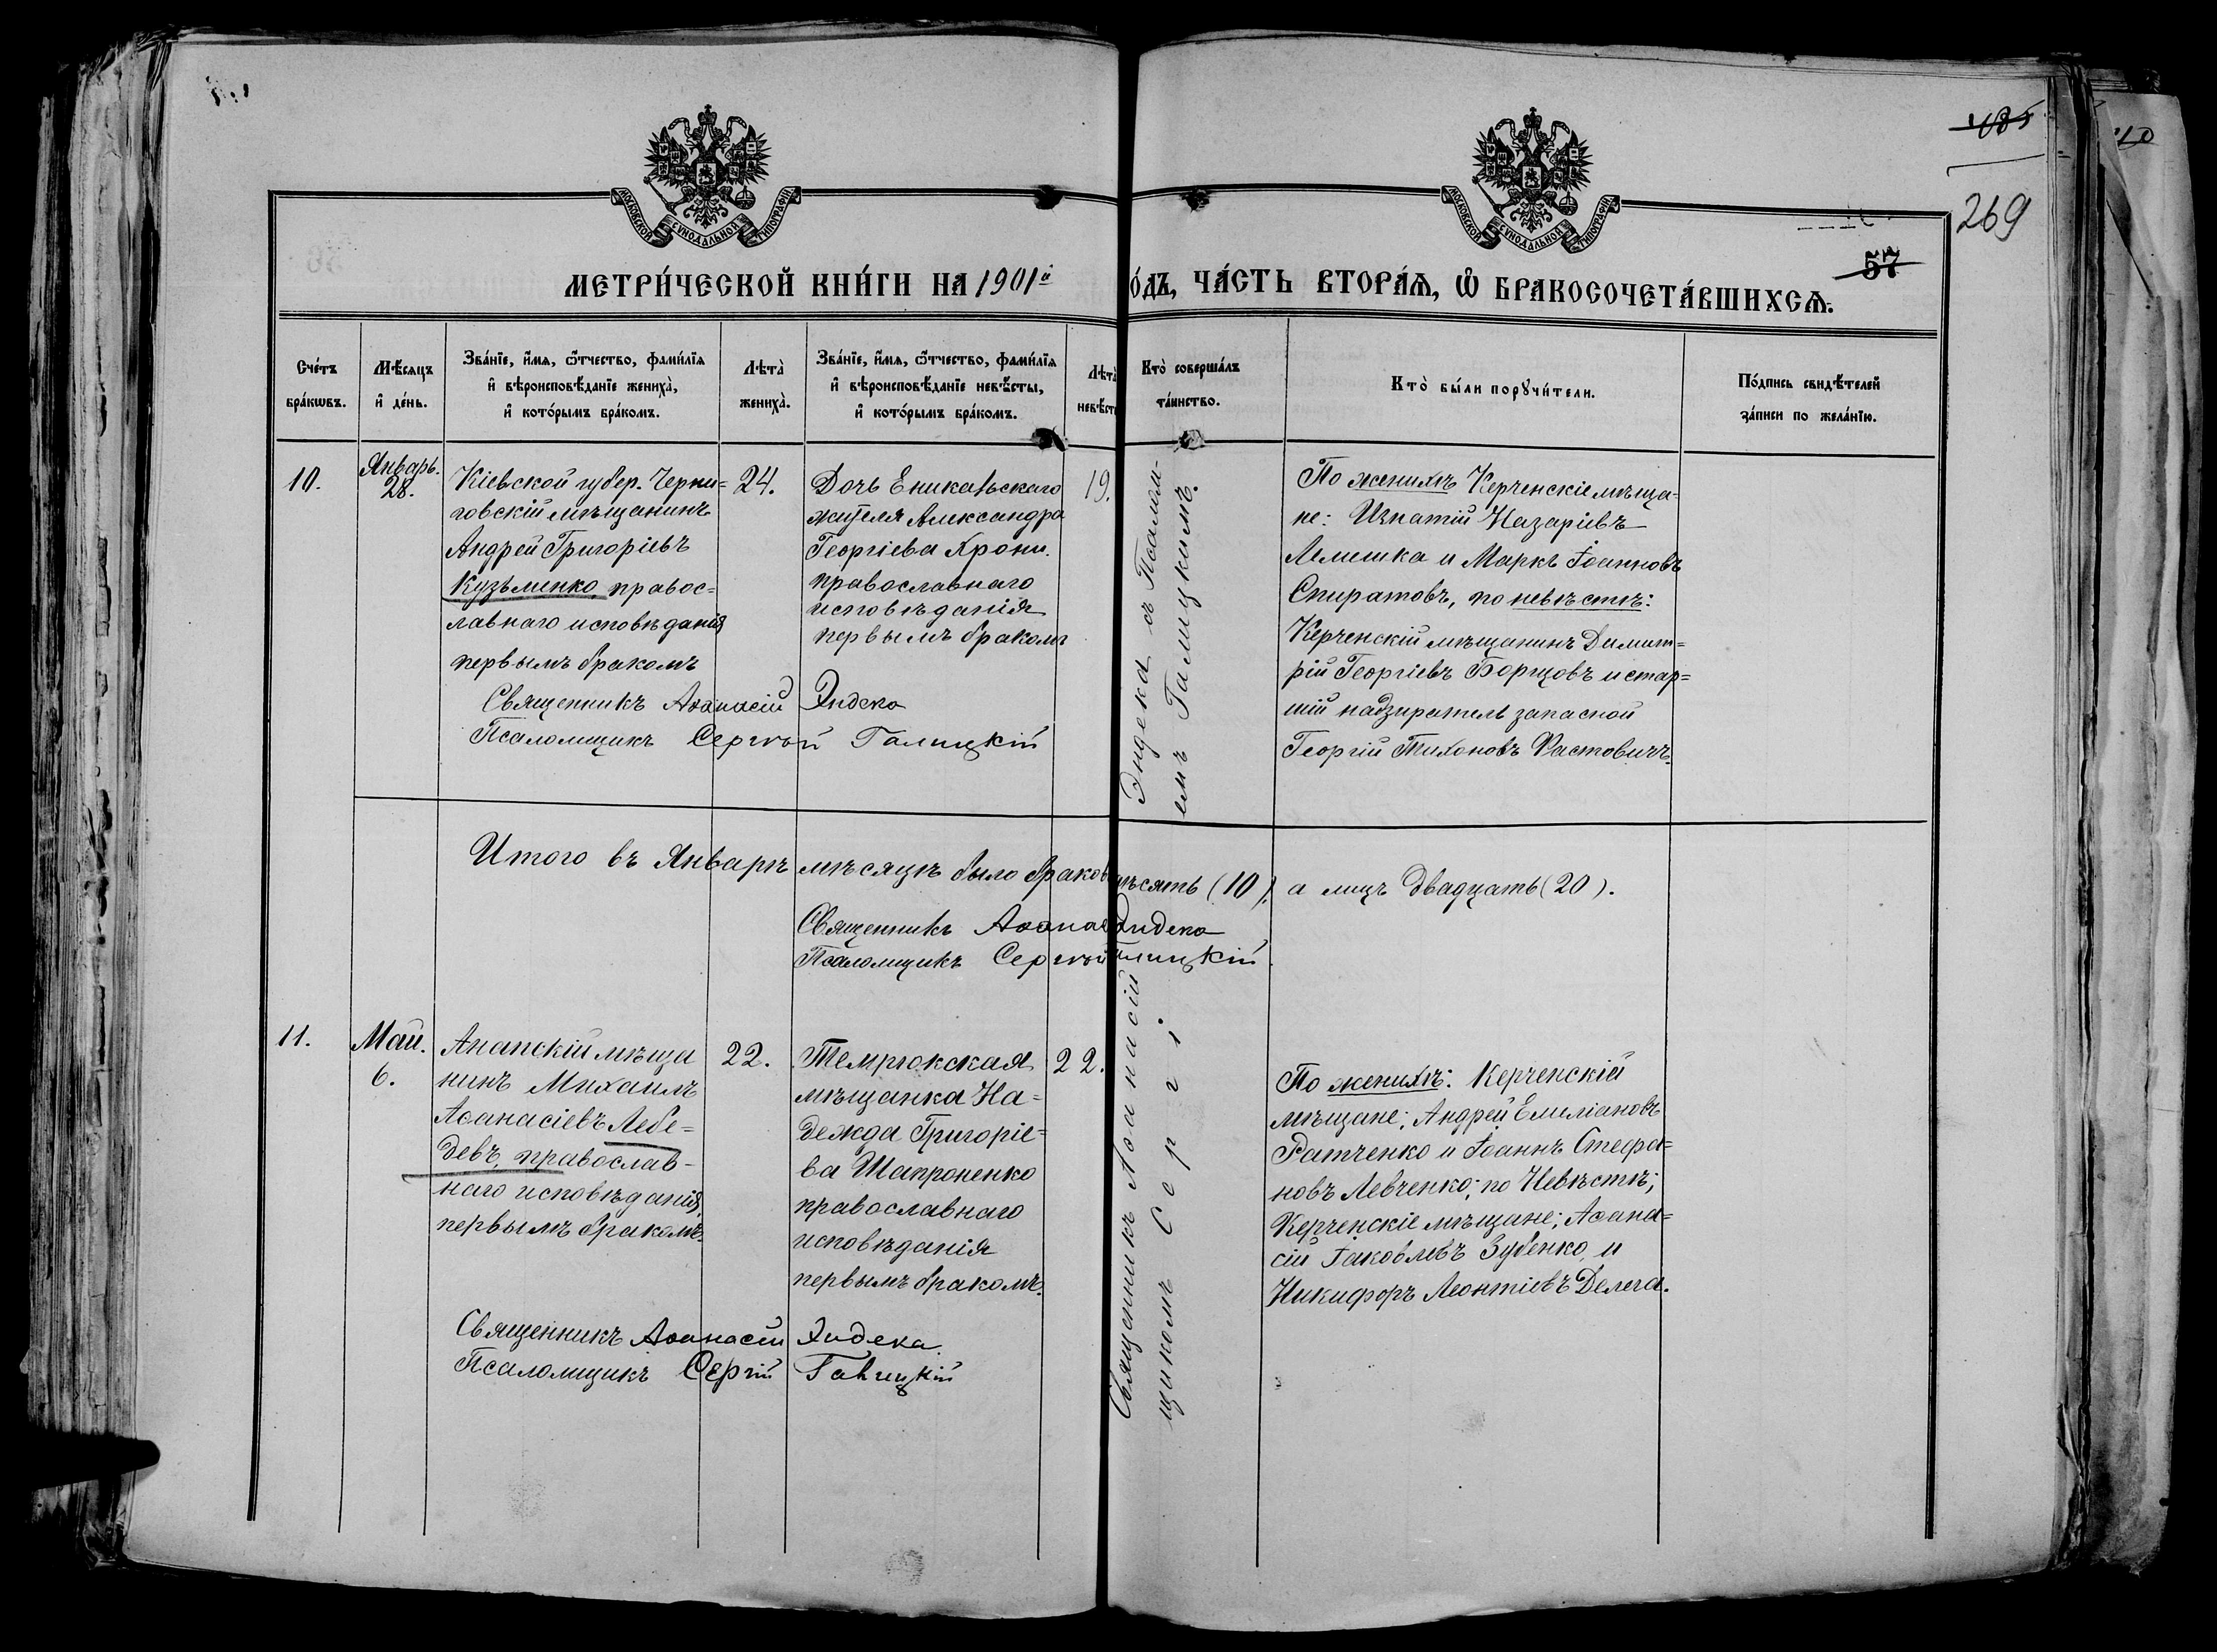 485
269
57
МОСКОВСКОЙ СѴНОДАЛЬНОЙ ТИПОГРАФІИ
МОСКОВСКОЙ СѴНОДАЛЬНОЙ ТИПОГРАФІИ
МЕТРИ́ЧЕСКОЙ КНИ́ГИ НА 1901й
О́ДЪ, ЧА́СТЬ ВТОРА́Ѧ, Ѽ БРАКОСОЧЕТА́ВШИХСѦ.
Сче́тъ
бра́кѡвъ.
Мѣ́сяцъ
и҆ де́нь.
Зва́нїе, и҆́мѧ, ѻ҆́тчество, фами́лїѧ
и҆ вѣроисповѣ́данїе жениха̀,
и҆ кото́рымъ бра́комъ.
Лѣта̀
жениха̀.
Зва́нїе, и҆́мѧ, ѻ҆́тчество, фами́лїѧ
и҆ вѣроисповѣ́данїе невѣ́сты,
и҆ кото́рымъ бра́комъ.
Лѣта̀
невѣ́ст
Кто̀ соверша́лъ
та́инство.
Кто̀ бы́ли порꙋчи́тели.
По́дпись свидѣ́телей
за́писи по жела́нїю.
10.
Январь.
28.
Кіевской губер. Черни=
говскій мѣщанинъ
Андрей Григоріевъ
Кузьменко, правос=
лавнаго исповѣданія
первымъ бракомъ
24.
Дочь Еникальскаго
жителя Александра
Георгіева Хрони.
православнаго
исповѣданія
первымъ бракомъ
19.
По женихѣ Керченскіе мѣща=
не: Игнатій Назаріевъ
Лемешка и Маркъ Іоанновъ
Спиратовъ, по невѣстѣ:
Керченскій мѣщанинъ Димит=
рій Георгіевъ Борщовъ и стар=
шій надзиратель запасной
Георгій Тихоновъ Фастовичъ.
Священникъ Аѳанасій Эндека
Псаломщикъ Сергѣй Галицкій
Итого въ Январѣ мѣсяцѣ было браковъ десять (10), а лицъ двадцать (20).
Священникъ Аѳана Эндека
Псаломщикъ Сергѣй Галицкій.
Священникъ Аѳанасій Эндека съ Псалом-
щикомъ Сергіемъ Галицкимъ.
11.
Май.
6.
Анапскій мѣща
нинъ Михаилъ
Аѳанасіевъ Лебе=
девъ, православ-
наго исповѣданія,
первымъ бракомъ.
22.
Темрюкская
мѣщанка На=
дежда Григоріе=
ва Шапроненко
православнаго
исповѣданія
первымъ бракомъ.
22.
По женихѣ: Керченскій
мѣщане; Андрей Емиліановъ
Ратченко и Іоаннъ Стефа=
новъ Левченко; по Невѣстѣ;
Керченскіе мѣщане; Аѳана=
сій Іаковлевъ Зубенко, и
Никифоръ Леонтіевъ Делега.
Священникъ Аѳанасій Эндека.
Псаломщикъ Сергій Галицкій